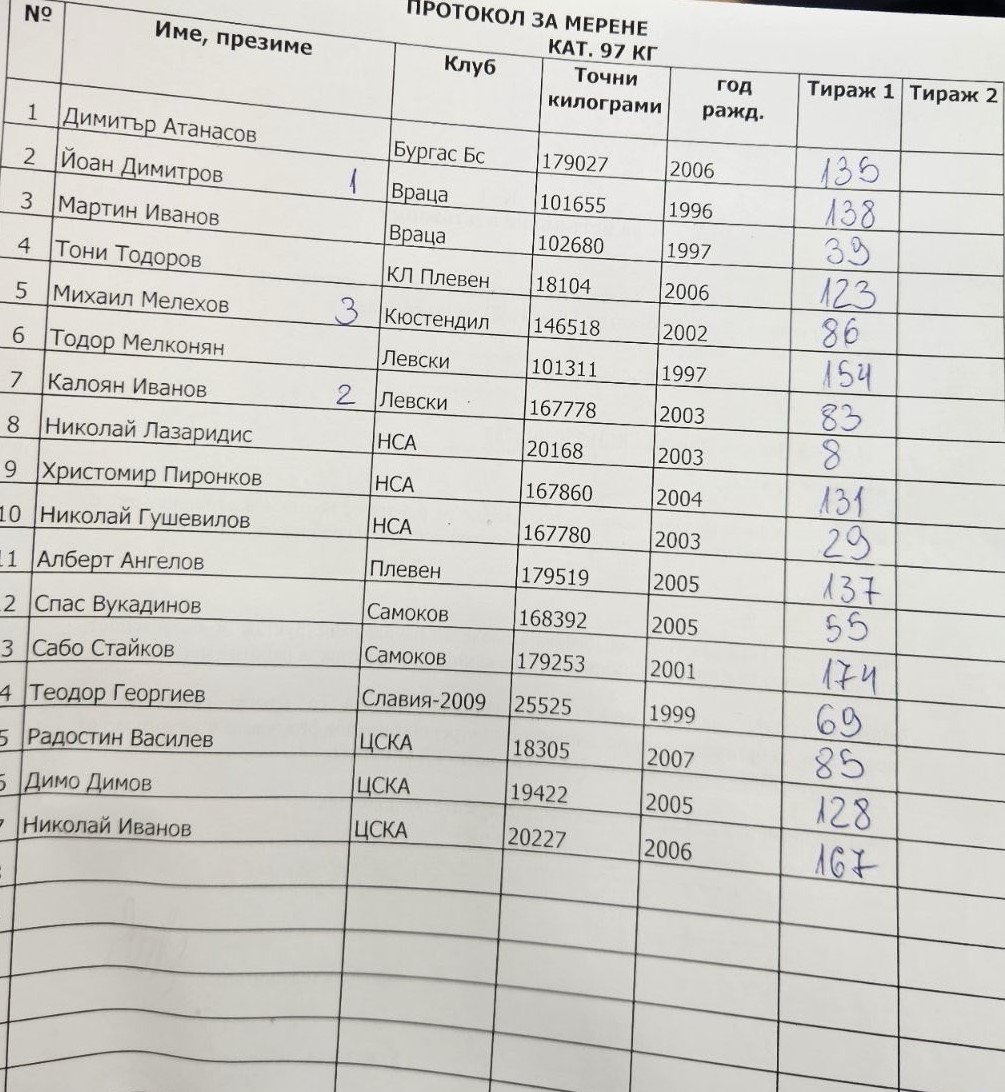 ПРОТОКОЛ ЗА МЕРЕНЕ
КАТ. 97 КГ
№ Име, презиме Клуб Точни килограми год ражд. Тираж 1 Тираж 2
1 Димитър Атанасов Бургас Бс 179027 2006 135
2 Йоан Димитров 1 Враца 101655 1996 138
3 Мартин Иванов Враца 102680 1997 39
4 Тони Тодоров КЛ Плевен 18104 2006 123
5 Михаил Мелехов 3 Кюстендил 146518 2002 86
6 Тодор Мелконян Левски 101311 1997 154
7 Калоян Иванов 2 Левски 167778 2003 83
8 Николай Лазаридис НСА 20168 2003 8
9 Христомир Пиронков НСА 167860 2004 131
10 Николай Гушевилов НСА 167780 2003 29
11 Алберт Ангелов Плевен 179519 2005 137
2 Спас Вукадинов Самоков 168392 2005 55
3 Сабо Стайков Самоков 179253 2001 174
4 Теодор Георгиев Славия-2009 25525 1999 69
5 Радостин Василев ЦСКА 18305 2007 85
6 Димо Димов ЦСКА 19422 2005 128
7 Николай Иванов ЦСКА 20227 2006 167